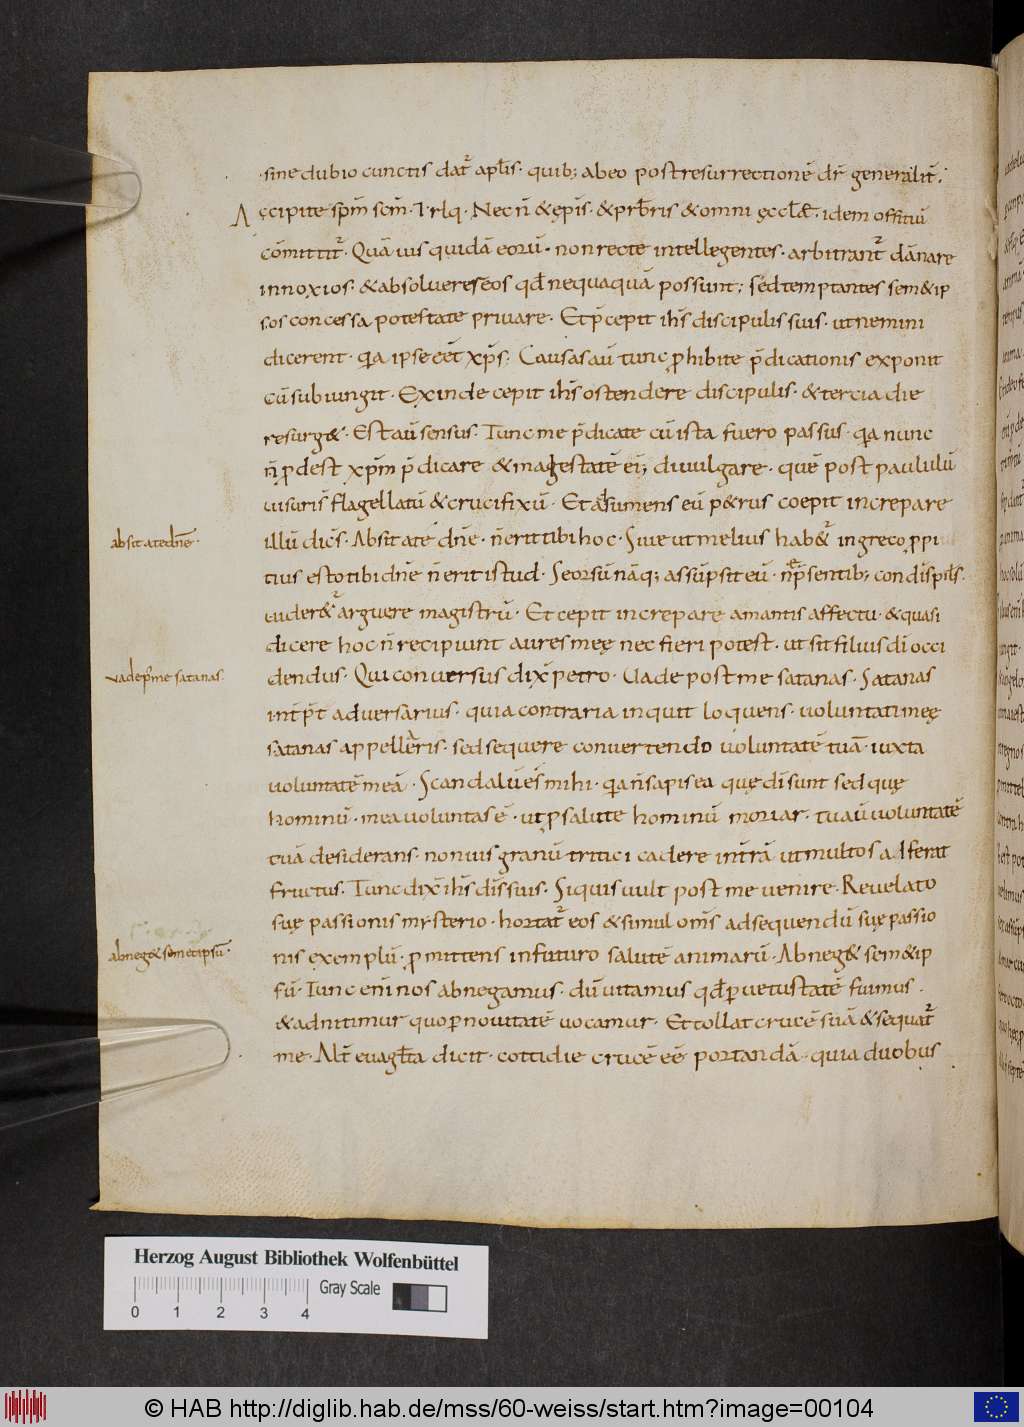 sine dubio cunctis dat̄ apl̄is. quib; ab eo post resurrectionē dr̄ generalit̄;
Accipite sp̄m sc̄m. Et rlq. Nec n̄ & ep̄is. & prb̄ris & omni ęccl̄æ. idem offitiū
cōmittit̄. Quā uis quidā eorū. non recte intellegentes. arbitrant̄ dānare
innoxios. & absoluere s̄ eos qd̄ nequaquā possunt; sed temptantes sem&ip
sos concessa potestate priuare. Et p̄cepit ih̄s discipulis suis. ut nemini
dicerent. qa ipse eēt xp̄s. Causas aū tunc ꝓhibite p̄dicationis exponit
cū subiungit. Exinde cepit ih̄s ostendere discipulis. & tercia die
resurg&. Est aū sensus. Tunc me p̄dicate cū ista fuero passus. qa nunc
n̄ ꝓdest xp̄m p̄dicare & magestatē ei; diuulgare. quē post paululū
uisuri s̄ flagellatū & crucifixū. Et adsumens eū p&rus coepit increpare
absit a te dn̄e.
illū dic̄s. Absit a te dn̄e. n̄ erit tibi hoc. Siue ut melius hab&̄ in greco ꝓpi
tius esto tibi dn̄e n̄ erit istud. Seorsū nāq; assūpsit eū. ne p̄sentib; condispl̄s.
uider&̄ arguere magistrū. Et cepit increpare amantis affectu. & quasi
dicere hoc n̄ recipiunt aures meę nec fieri potest. ut sit filius dī occi
uade p᷒ me satanas.
dendus. Qui conuersus dix̄ petro. Uade post me satanas. Satanas
int̄p̄t aduersarius. quia contraria inquit loquens. uoluntati meę
satanas appellaberis. sed sequere conuertendo uoluntatē tuā. iuxta
uoluntatē meā. Scandalū es mihi. qa n̄ sapis ea quę dī sunt sed quę
hominū. mea uoluntas ē. ut ꝑ salute hominū moriar. tu aū uoluntatē
tuā desiderans. non uis granū tritici cadere in t̄rā ut multos adferat
fructus. Tunc dix̄ ih̄s dis̄ suis. Si quis uult post me uenire. Reuelato
suę passionis mysterio. hortat̄ eos & simul om̄s ad sequendū suę passio
abneg& semetipsū.
nis exemplū. ꝓmittens in futuro salutē animarū. Abneg& sem&ip
sū. Tunc eni nos abnegamus. dū uitamus qd̄ ꝑ uetustatē fuimus.
& adnitimur quo ꝑ nouitatē uocamur. Et tollat crucē suā & sequat̄
me. Alt̄ euagl̄ta dicit. cottidie crucē eē portandā. quia duobus
Herzog August Bibliothek Wolfenbüttel
Gray Scale
0 1 2 3 4
© HAB http://diglib.hab.de/mss/60-weiss/start.htm?image=00104